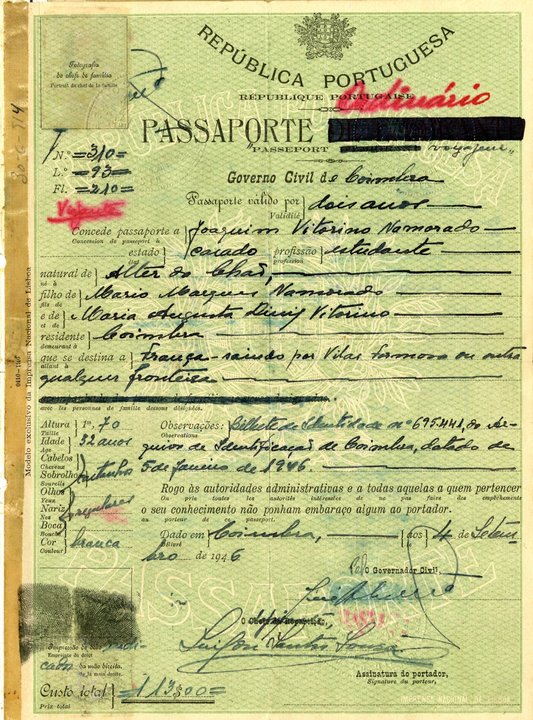 Fotografia
do chefe de família
Portrait du chef de la famille
REPÚBLICA PORTUGUESA
RÉPUBLIQUE PORTUGAISE
Ordinário
PASSAPORTE
PASSEPORT
N.º =310=
L.º =93=
Fl. =210=
Viajante
Governo Civil de Coimbra
Passaporte válido por dois anos
Validité
Concede passaporte a Joaquim Vitorino Namorado
Concession du passeport à
estado casado profissão estudante
profession
natural de Alter do Chão
né à
filho de Mario Marques Namorado
fils de
e de Maria Augusta Vitorino
et de
residente Coimbra
demeurant à
que se destina a França - saindo por Vilar Formoso ou outra
allant à
qualquer fronteira
avec les personnes de famille dessous désignées.
Altura 1m,70
Taille
Idade 32 anos
Age
Cabelos
Cheveux
Sobrolho castanhos
Sourcils
Olhos
Yeux
Nariz regulares
Nez
Boca
Bouche
Cor branca
Couleur
Observações: Bilhete de Identidade nº 695441, do Ar-
Observations
quivo de Identificação de Coimbra, datado de
5 de Janeiro de 1946.
Rogo às autoridades administrativas e a todas aquelas a quem pertencer
On prie toutes les autorités intéressées de ne pas faire des empêchements
o seu conhecimento não ponham embaraço algum ao portador.
au porteur de passeport.
Dado em Coimbra, aos 4 de Setem-
Délivré
bro de 1946
O Governador Civil,
Assinatura do portador,
Signature du porteur,
Impressão do
Empreinte du doigt
da mão direita.
de la main droite.
Custo total =113$00=
Prix total
Modelo exclusivo da Imprensa Nacional de Lisboa
IMPRENSA NACIONAL